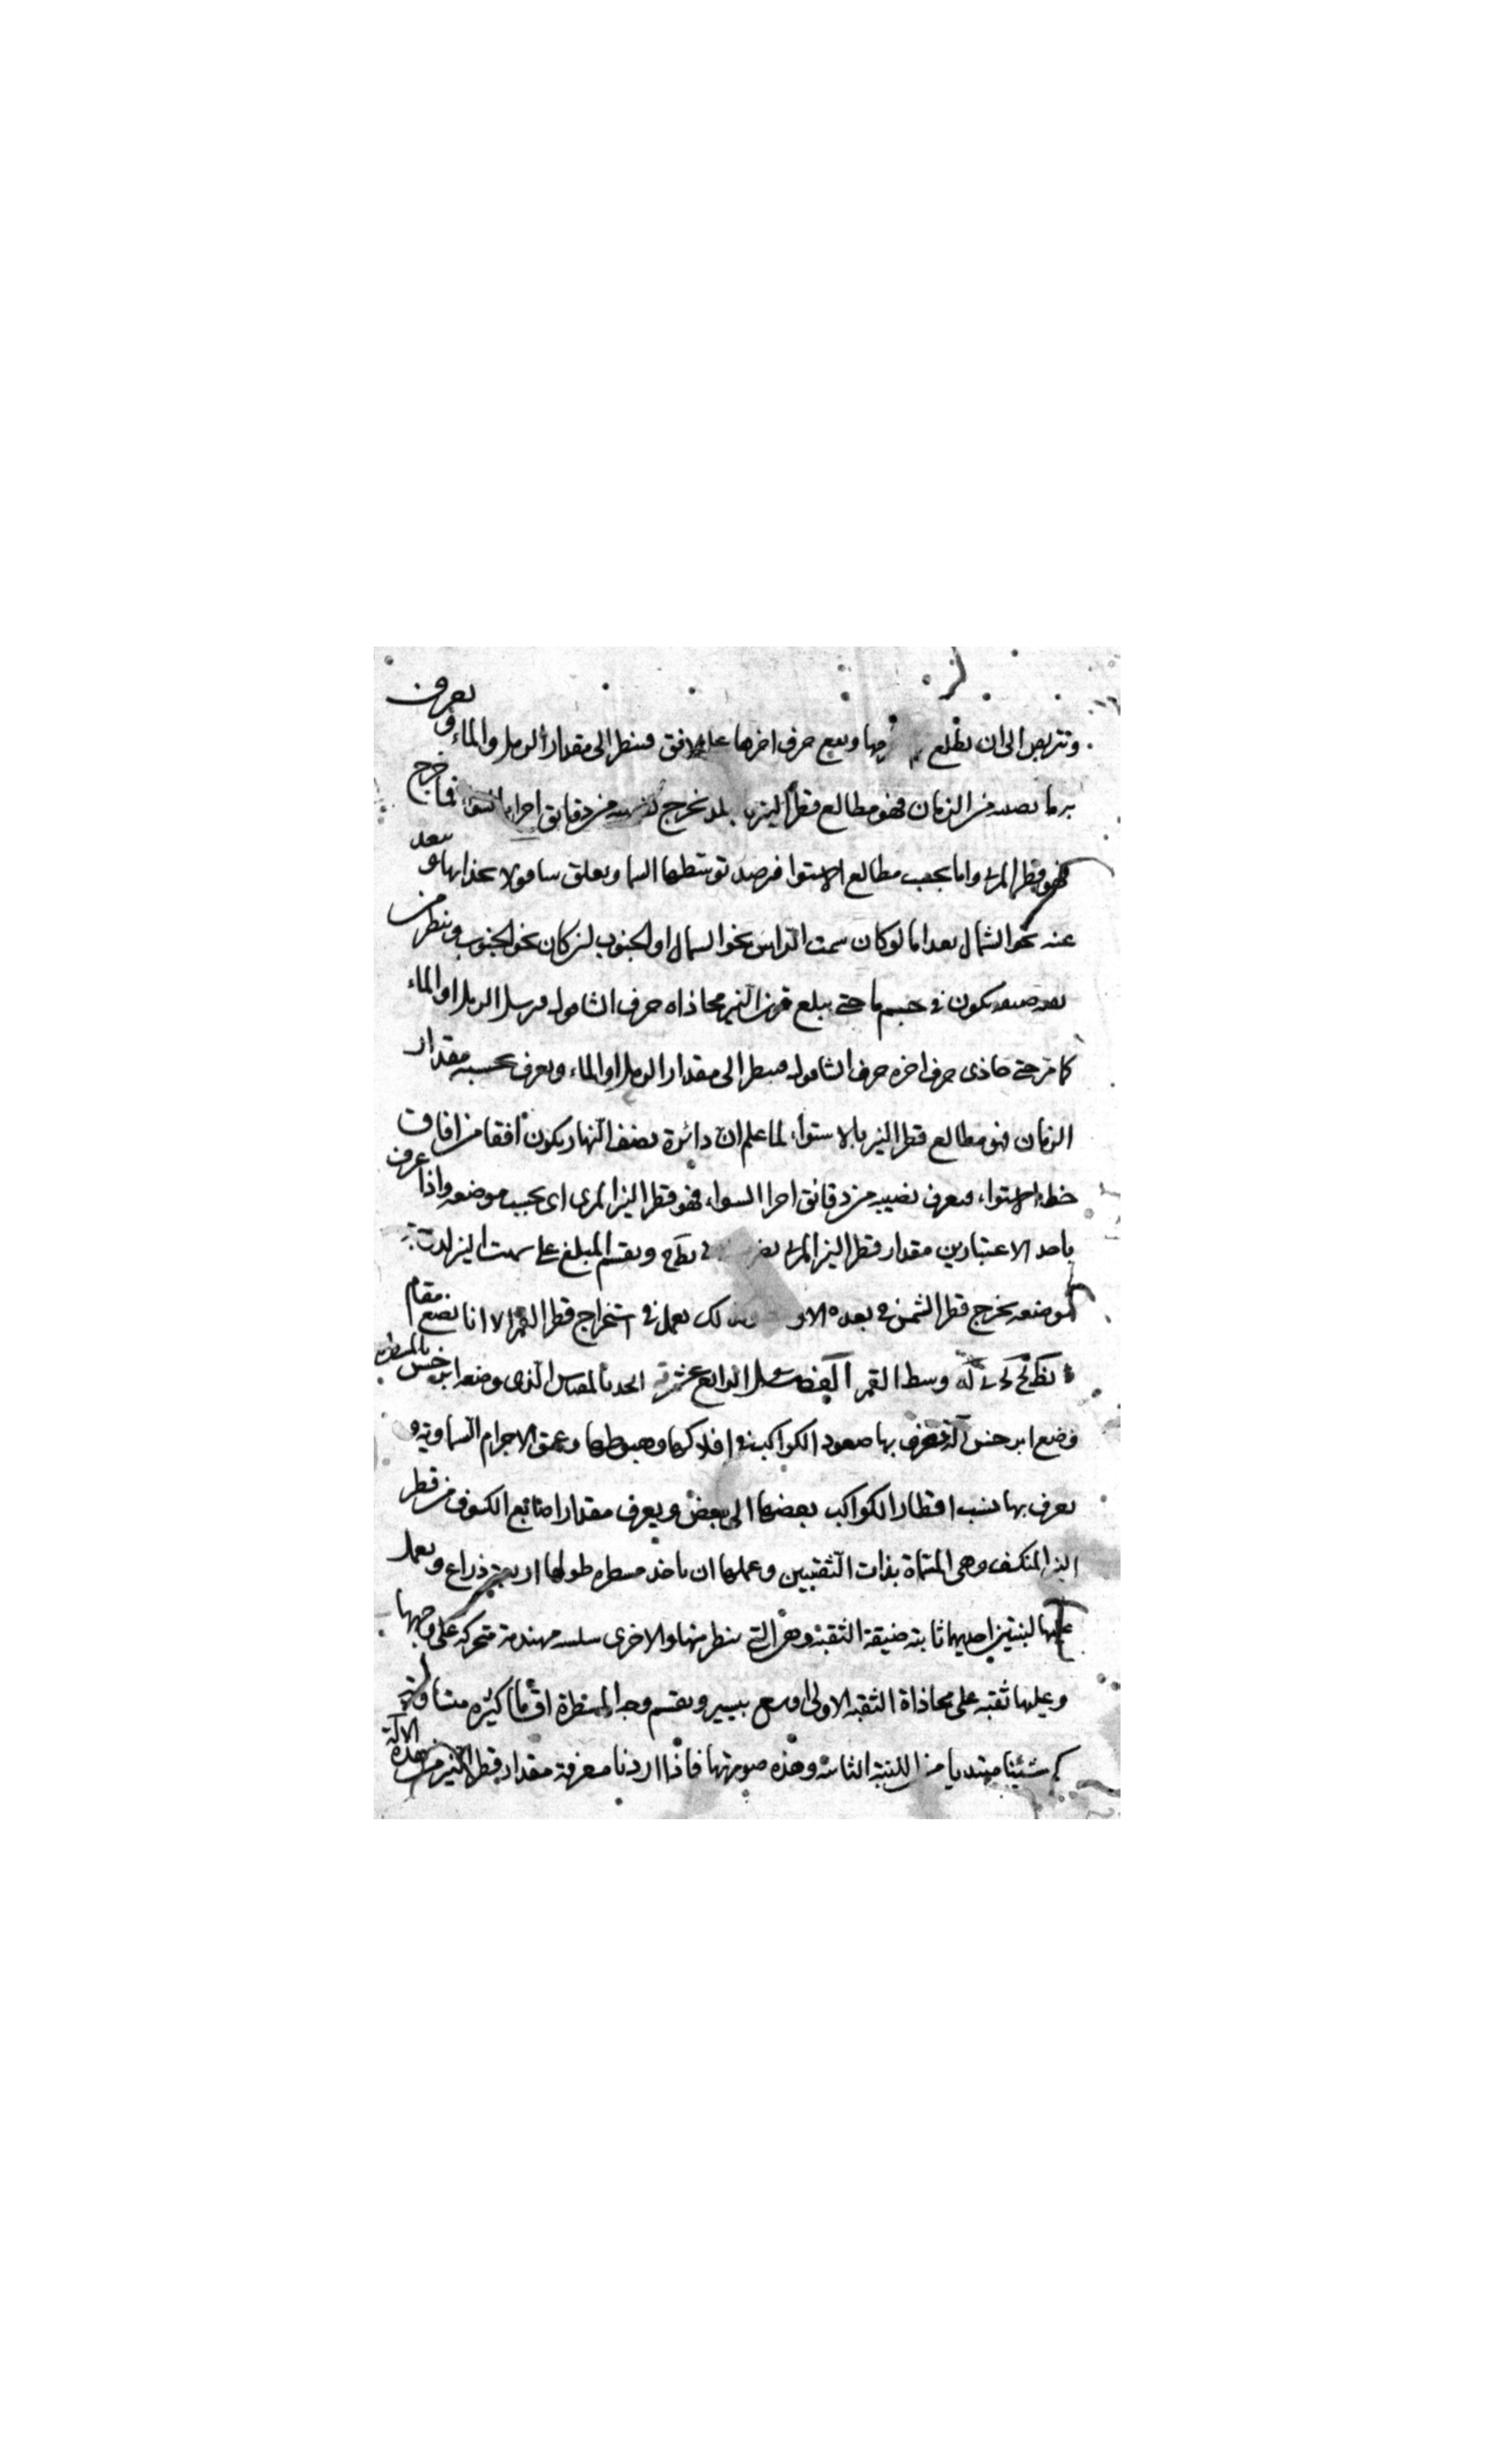 ونتربص الى ان يطلع جرمها ويبلغ حرف اخرها على الافق فينظر الى مقدار الرمل والماء ويعرف
بما نصيبه من الزمان فهو مطالع قطر النير بالبلد نخرج نصيبه من دقايق اجزاء السواء فما خرج
فهو قطر المرئى واما بحسب مطالع الاستوا فرصد توسطها السما ويعلق شاقولا بحذائها ويبعد
عنه نحو الشمال بعدا ما لو كان سمت الراس نحو الشمال او الجنوب لو كان نحو الجنوب وينظر من
ثقبة ضيقة يكون فى جسم ما حتى يبلغ قرن النير محاذاة حرف الشاقول فيرسل الرمل او الماء
كما مر حتى حاذى حرف اخره حرف الشاقول فينظر الى مقدار الرمل او الماء ويعرف بحسبه مقدار
الزمان فهو مطالع قطر النير بالاستواء لما علم ان دائرة نصف النهار يكون افقا من افاق
خط الاستواء فيعرف نصيبه من دقائق اجزا السواء فهو قطر النير المرى اى بحسب موضعه واذا عرف
باحد الاعتبارين مقدار قطر النير المرئى فى ويقسم المبلغ على
لموضعه يخرج قطر الشمس فى بعده الاوسط وكذلك يعمل فى استخراج قطر القمر الا انا نضع مقام
وسط القمر الرابع عشر الذى وضعه ابرخس بالمسطرة
وضع ابرخس آلة تعرف بها صعود الكواكب فى افلاكها وهبوطها وعمق الاجرام السماوية و
يعرف بها نسب اقطار الكواكب بعضها الى بعض ويعرف مقدار اصابع الكسوف من قطر
النير المنكسف وهى المسماة بذات الثقبتين وعملها ان ياخذ مسطرة طولها اربعة ذراع ويعمل
عليها لبنتين احديهما ثابتة ضيقة الثقبة وهى التى ينظر منها والاخرى سلسة مهندمة متحركة على وجهها
وعليها ثقبة على محاذاة الثقبة الاولى اوسع بيسير ويقسم وجه المسطرة اقساما كثيرة متساوية
كم شئنا مبتديا من اللبنة الثابتة وهذه صورتها فاذا اردنا معرفة مقدار قطر النير من هذه الآلة